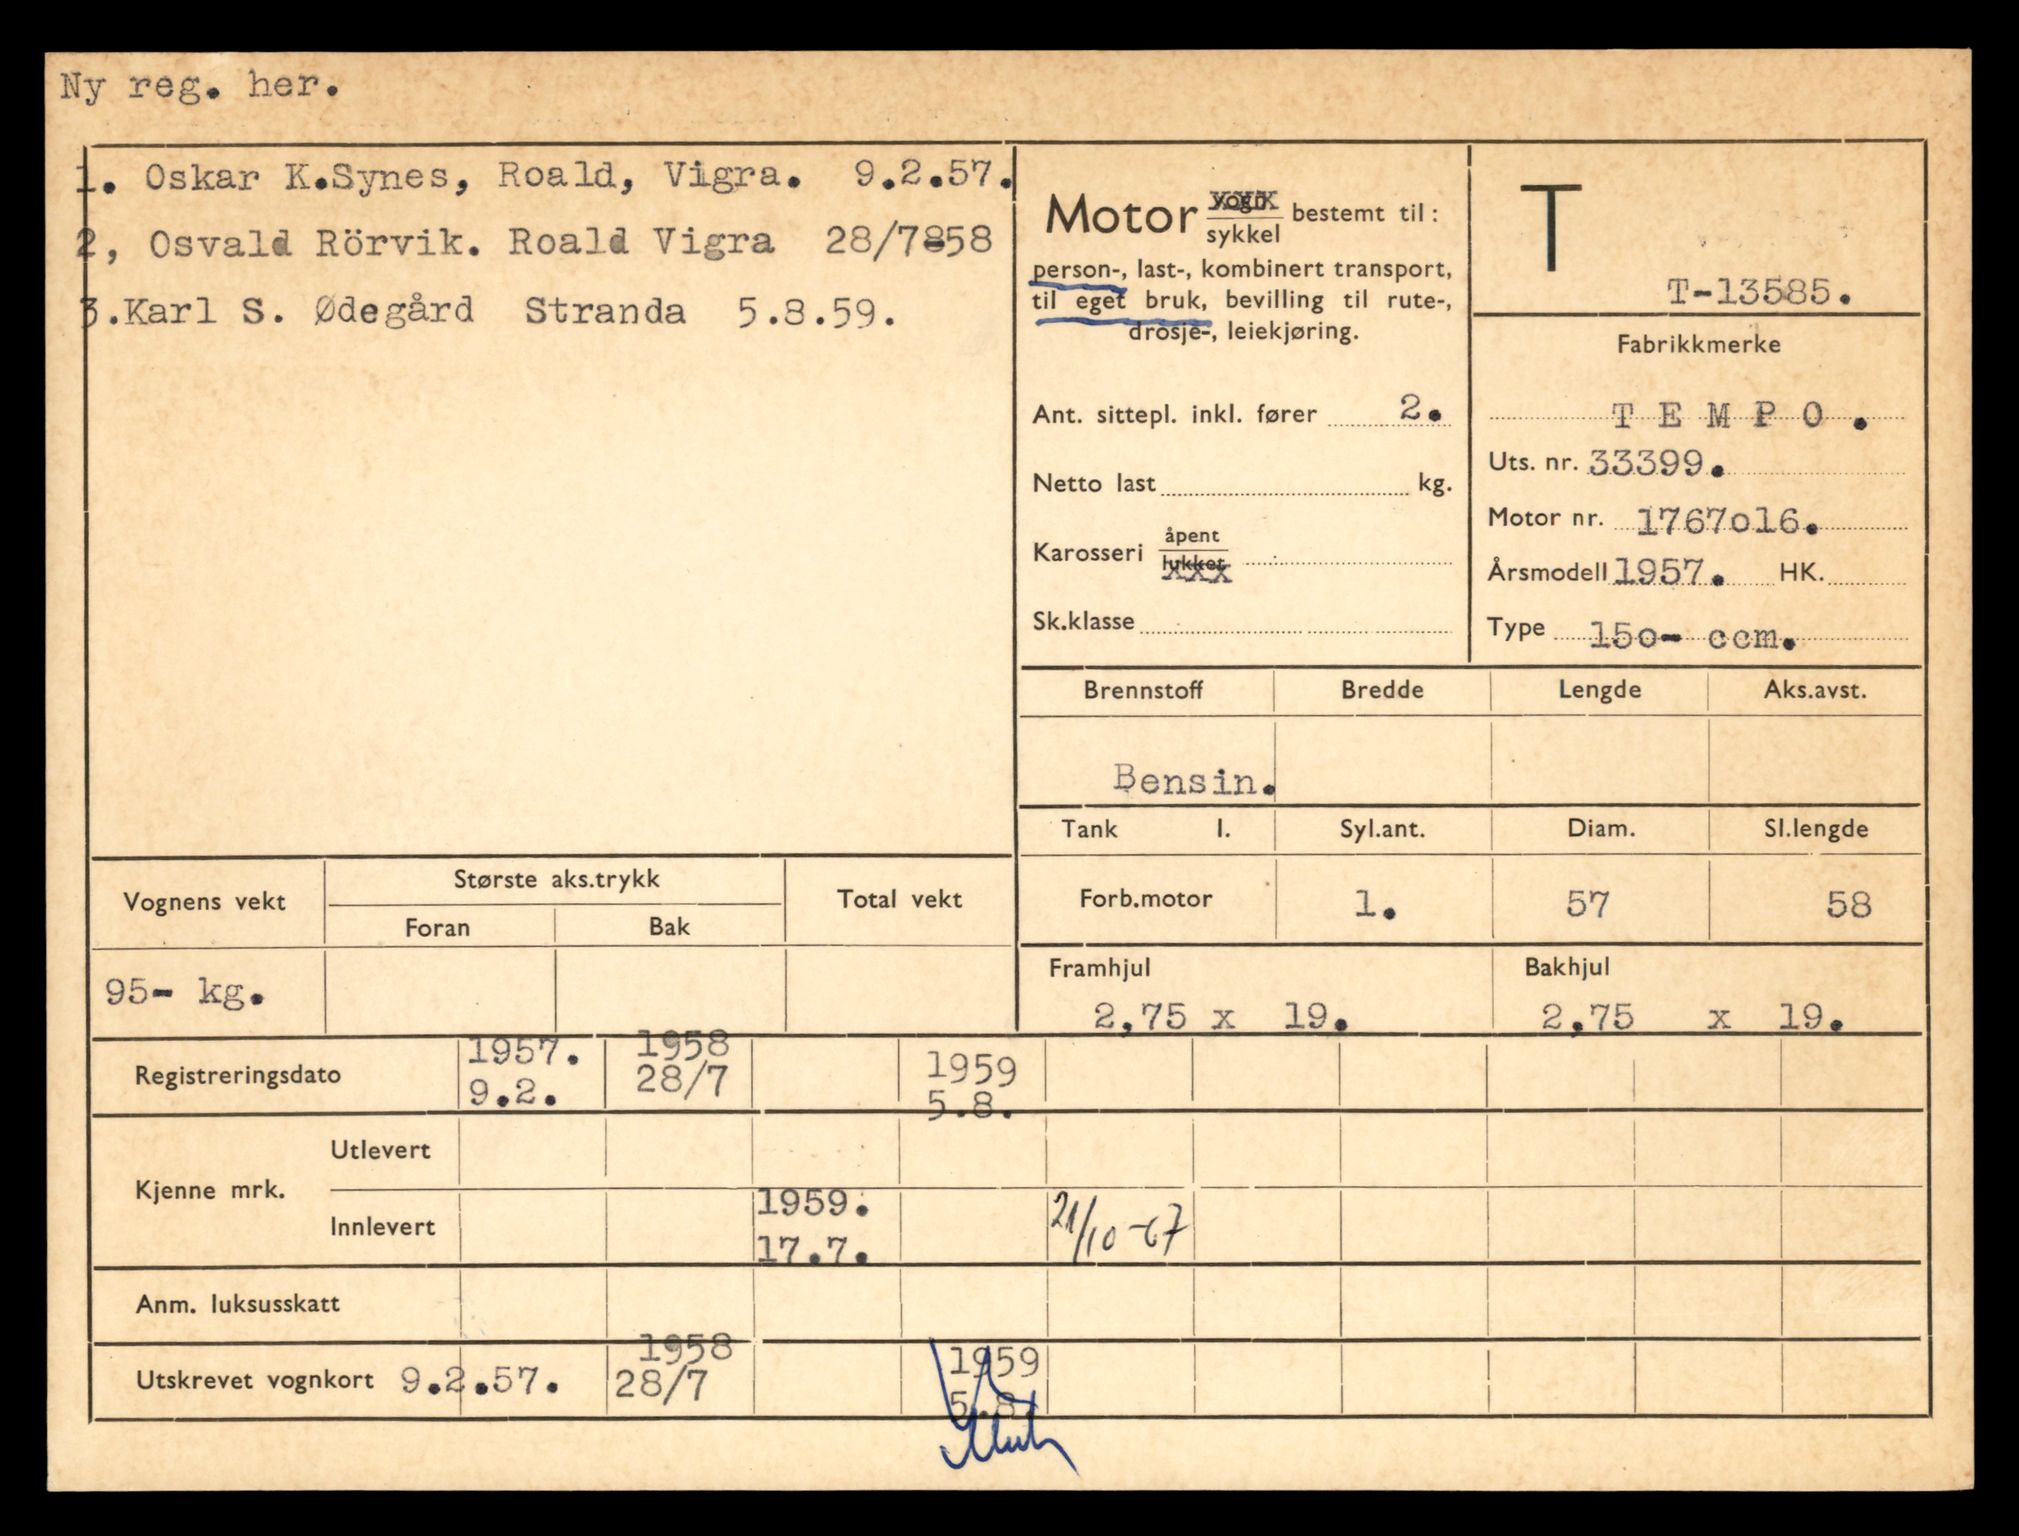 Ny reg. her.
1. Oskar K.Synes, Roald, Vigra. 9.2.57.
2, Osvald Rörvik. Roald Vigra 28/7-58
3.Karl S. Ødegård Stranda 5.8.59.
Motor vogn
sykkel bestemt til:
person-, last-, kombinert transport,
til eget bruk, bevilling til rute-,
drosje-, leiekjøring.
Ant. sittepl. inkl. fører 2.
Netto last kg.
Karosseri åpent
lukket
Sk.klasse
T
T-13585.
Fabrikkmerke
TEMPO.
Uts. nr. 33399.
Motor nr. 1767o16.
Årsmodell 1957. HK.
Type 15o- ccm.
Brennstoff Bredde Lengde Aks.avst.
Bensin.
Tank l. Syl.ant. Diam. Sl.lengde
Forb.motor 1. 57 58
Framhjul Bakhjul
2,75 x 19. 2,75 x 19.
Vognens vekt Største aks.trykk Total vekt
Foran Bak
95- kg.
Registreringsdato 1957. 1958 1959
9.2. 28/7 5.8.
Kjenne mrk. Utlevert
Innlevert 1959. 21/10-67
17.7.
Anm. luksusskatt
Utskrevet vognkort 9.2.57. 1958 1959
28/7 5.8.